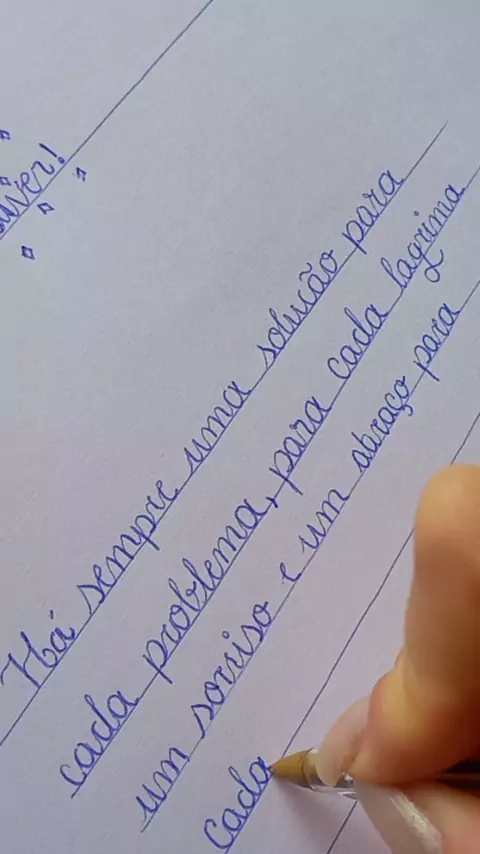 Há sempre uma solução para
cada problema, para cada lagrima
um sorriso e um abraço para
Cada